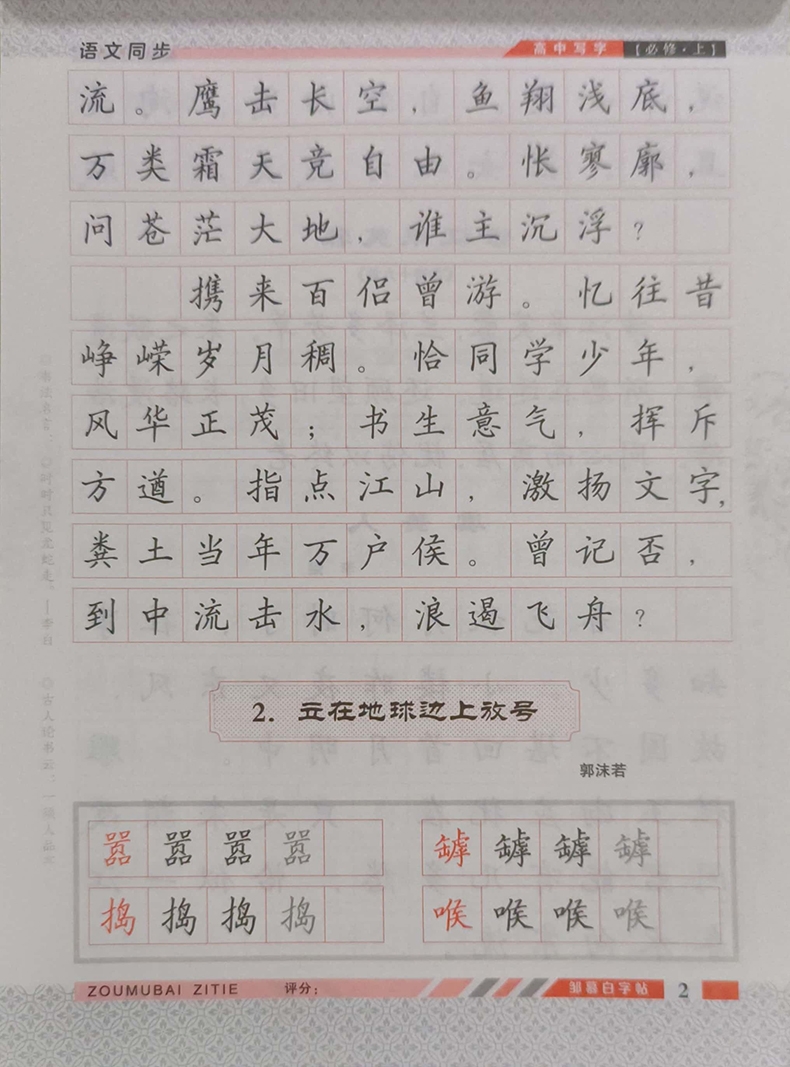 语文同步
高中写字 【必修·上】
流。鹰击长空，鱼翔浅底，
万类霜天竞自由。怅寥廓，
问苍茫大地，谁主沉浮？
携来百侣曾游。忆往昔
峥嵘岁月稠。恰同学少年，
风华正茂；书生意气，挥斥
方遒。指点江山，激扬文字，
粪土当年万户侯。曾记否，
到中流击水，浪遏飞舟？
2. 立在地球边上放号
郭沫若
嚣 嚣 嚣 嚣 罅 罅 罅 罅
捣 捣 捣 捣 喉 喉 喉 喉
ZOUMUBAI ZITIE 评分： 邹慕白字帖 2